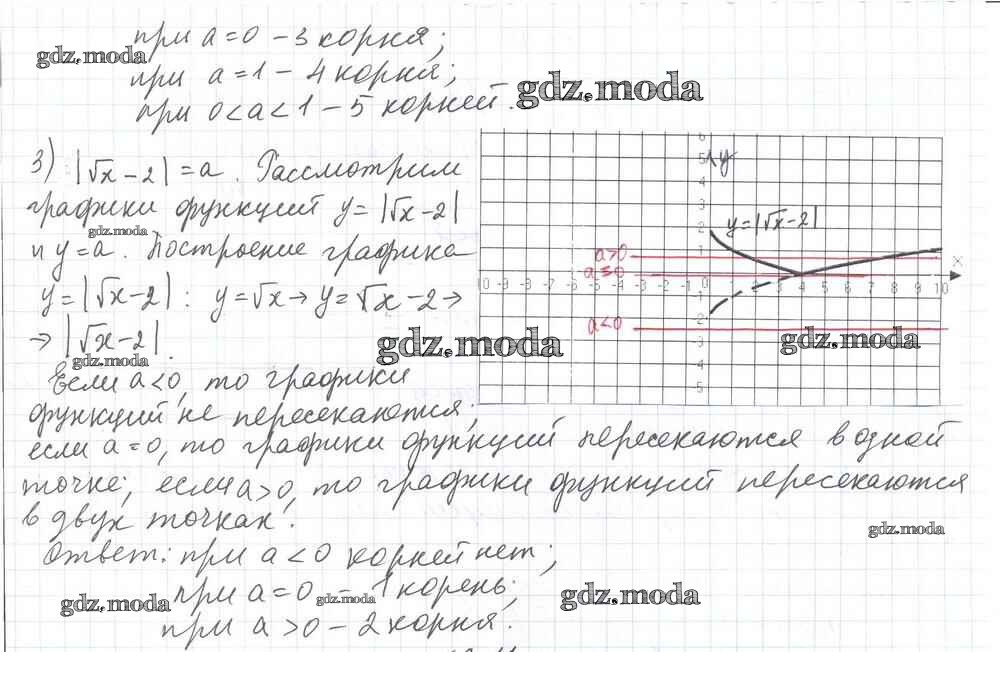 при a=0 – 3 корня;
gdz.moda
при a=1 – 4 корня;
при 0<a<1 – 5 корней.
gdz.moda
3) |√x – 2| = a. Рассмотрим
графики функций y=|√x–2|
gdz.moda
и y=a. Построение графика
y=|√x–2| : y=√x → y=√x – 2 →
→ |√x–2|.
gdz.moda
gdz.moda
6
5
y
4
3
2
y=|√x–2|
1
a>0
a=0
x
-9 -8 -7 -6 -5 -4 -3 -2 -1 0 1 2 3 4 5 6 7 8 9 10
a<0
gdz.moda
Если a<0, то графики
функций не пересекаются;
если a=0, то графики функций пересекаются в одной
точке; если a>0, то графики функций пересекаются
в двух точках.
gdz.moda
Ответ: при a<0 корней нет;
при a=0 – 1 корень;
gdz.moda
gdz.moda
gdz.moda
при a>0 – 2 корня.